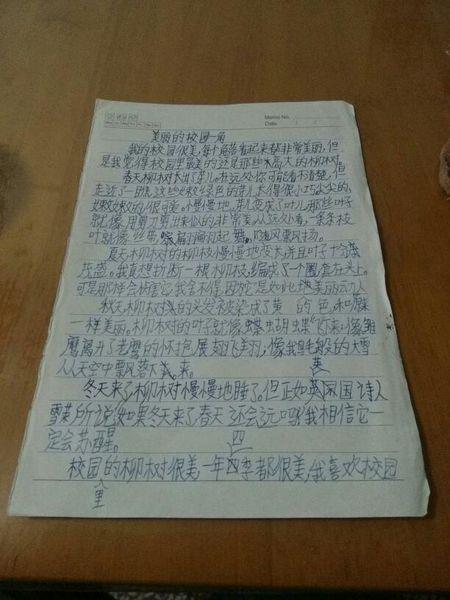 Memo No.
Date
美丽的校园一角
我的校园很美,每个角落看起来都非常美丽,但
是我觉得校园里最美的还是那些高大的柳树
春天柳树长出了芽儿,在远处你可能看不清楚,但
走近了一瞧,这些嫩绿色的芽儿长得很小巧尖尖的,
嫩嫩的很可爱。慢慢地,芽儿变来了叶儿那些叶子
就像用剪刀剪出来似的非常美,从远处看,一条条枝
叶就像丝带翩翩起舞,随风飘扬。
夏天柳树的柳枝慢慢地变长,并且叶子十分
茂盛。我真想折断一根柳枝,编成了一个圈套在头上。
可是那样会伤害它,我舍不得,因为它是如此地美丽动人
秋天柳树的头发被染成了黄的色,和原来
一样美丽,柳树的叶子就像蝴蝶飞来,像雏
鹰离开了老鹰的怀抱展翅飞翔,像我毛般的大雪
从天空中飘落下来。
英
冬天来了柳树慢慢地睡了。但正如英国诗人
雪莱所说如果冬天来了春天还会远吗?我相信它一
定会苏醒。
四
校园的柳树很美一年四季都很美,我喜欢校园
里